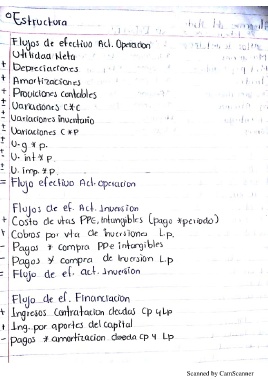 °Estructura
Flujos de efectivo Act. Operacion
Utilidad Neta
+ Depreciaciones
+ Amortizaciones
+ Provisiones contables
± Variaciones C*C
± Variaciones inventario
± Variaciones C*P
± U. g * p.
± U. int * p.
± U. imp. * p.
= Flujo efectivo Act. operacion
Flujos de ef. Act. Inversion
+ Costo de vtas PPE, Intangibles (pago * periodo)
+ Cobros por vta de inversiones L.p.
- Pagos * compra PPe intangibles
- Pagos y compra de Inversion L.p
= Flujo de ef. act. Inversion
Flujo de ef. Financiacion
+ Ingresos Contratacion deudas Cp y Lp
+ Ing. por aportes del capital
- Pagos * amortizacion deuda cp y Lp
Scanned by CamScanner